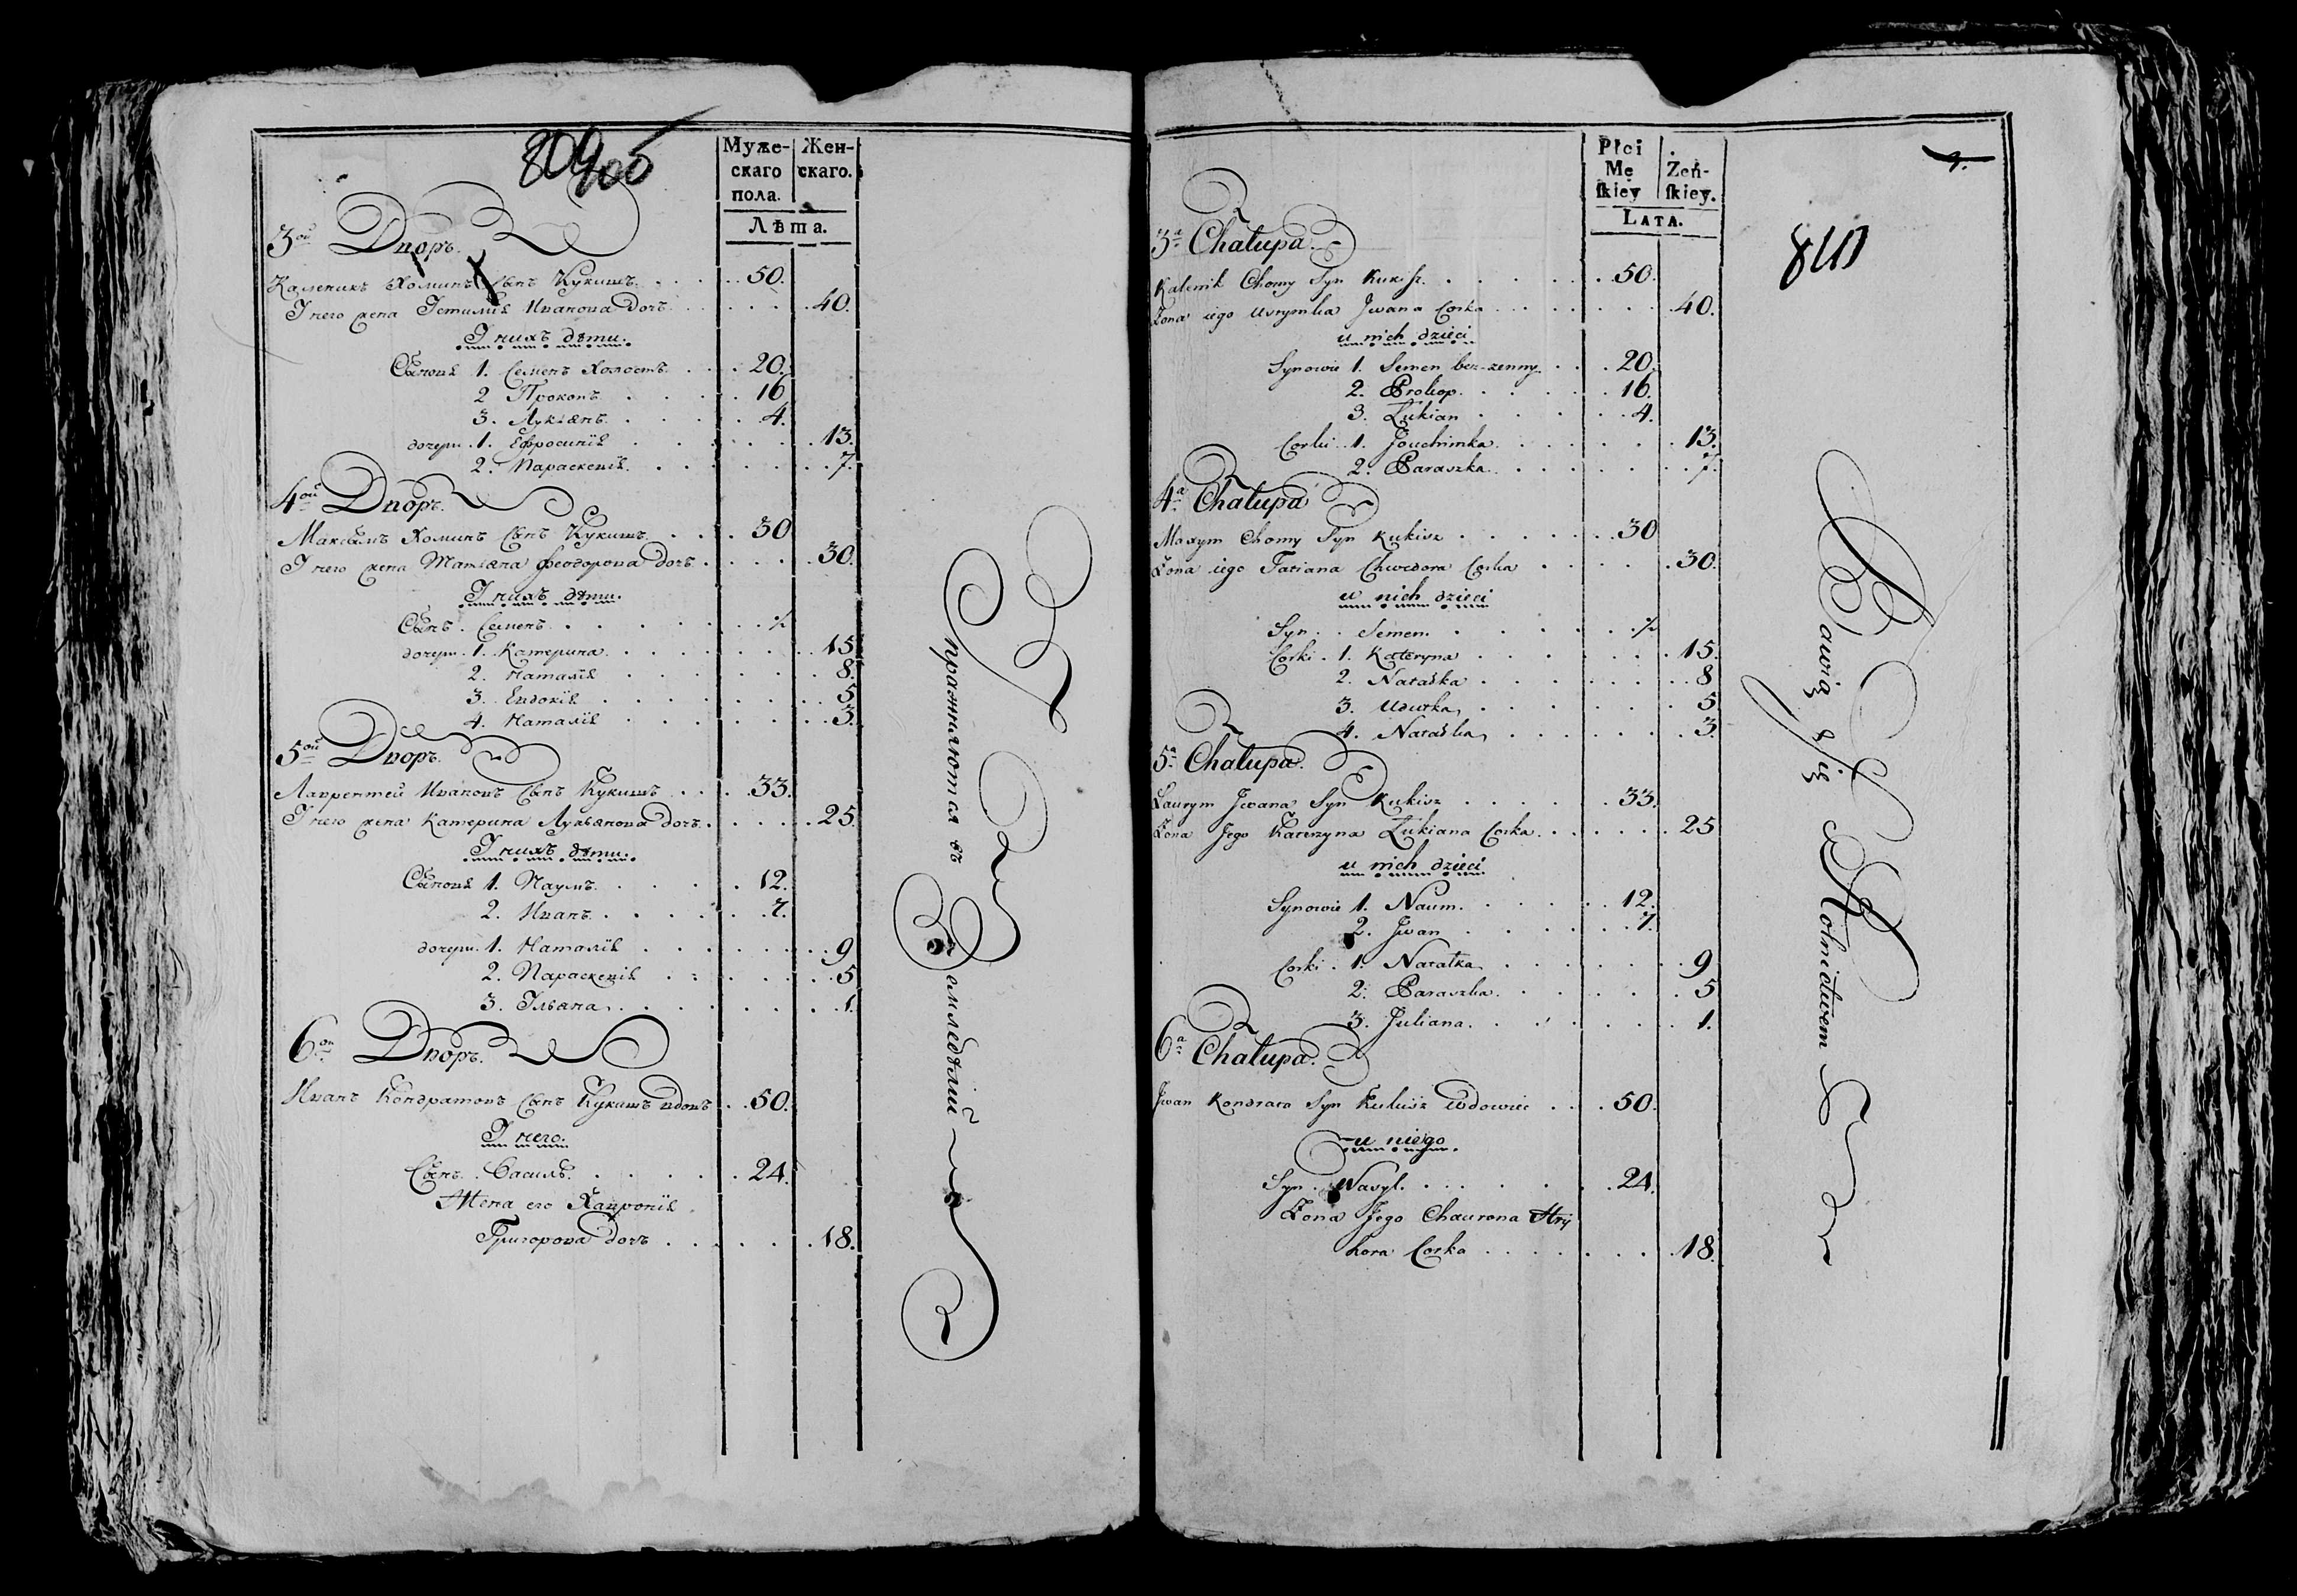 809 об
Муже-
скаго
пола.
Жен-
скаго.
Лѣта.
3ой Дворъ.
Каленикъ Хоминъ Сынъ Кукишъ . . . 50.
У него жена Устимія Иванова дочь . . . 40.
У нихъ дѣти.
Сыновя 1. Семенъ Холостъ . . . 20.
2 Прокопъ . . . 16
3. Лукіянъ . . . 4.
дочери . 1. Ефросинія . . . 13.
2. Параскевія . . . 7.
4ой Дворъ.
Максымъ Хоминъ Сынъ Кукишъ . . . 30
У него жена Татіяна Феодорова дочь . . . 30.
У нихъ дѣти.
Сынъ . Семенъ . . . ½
дочери . 1. Катерина . . . 15
2. Наталія . . . 8.
3. Евдокія . . . 5
4. Наталія . . . 3.
5ой Дворъ.
Лаврентей Ивановъ Сынъ Кукишъ . . . 33.
У него жена Катерина Лукьянова дочь . . . 25.
У нихъ дѣти.
Сыновя 1. Наумъ . . . 12.
2. Иванъ . . . 7.
дочери . 1. Наталія . . . 9
2. Параскевія . . . 5
3. Ульяна . . . 1.
6ой Дворъ.
Иванъ Кондратовъ Сынъ Кукишъ вдовъ . . 50.
У него.
Сынъ . Василь . . . 24.
Жена его Хавронія
Григорова дочь . . . 18.
Упражняются въ Земледѣліи
Płci
Mę
ſkiey
Zeń-
ſkiey.
LATA.
810
3a Chałupa.
Kalenik Chomy Syn Kukisz . . . 50.
Żona iego Ustymha Jwana Corka . . . 40.
u nich dzieci
Synowie 1. Semen bez-zenny . . . 20.
2. Prokop . . . 16.
3. Łukian . . . 4.
Corki . 1. Jouchimka . . . 13.
2. Paraszka . . . 7.
4a Chałupa
Maxym Chomy Syn Kukisz . . . 30
Żona iego Tatiana Chwedora Corka . . . 30.
u nich dzieci
Syn . . Semen . . . ½
Corki . 1. Kateryna . . . 15.
2. Natałka . . . 8
3. Udotka . . . 5
4. Natałka . . . 3.
5a Chałupa.
Laurym Jwana Syn Kukisz . . . 33.
Żona Jego Katerzyna Łukiana Corka . . . 25
u nich dzieci
Synowie 1. Naum . . . 12.
2. Jwan . . . 7.
Corki . 1. Natałka . . . 9
2. Paraszka . . . 5
3. Juliana . . . 1.
6a Chałupa.
Jwan Kondrata Syn Kukisz Wdowiec . . . 50.
u niego
Syn . Wasyl . . . 24.
Żona Jego Chaurona Hry
hora Corka . . . 18.
Bawią Się Rolnictwem